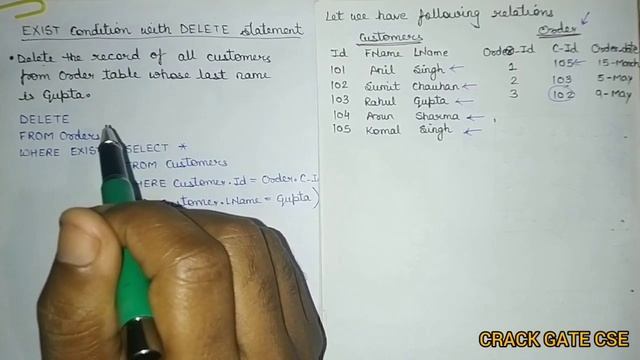 EXIST Condition with DELETE statement
• Delete the record of all customers
from Order table whose last name
is Gupta.
DELETE
FROM Orders
WHERE EXIS SELECT *
FROM Customers
HERE Customer.Id = Order.C-I
stomer.LName = Gupta)
Let we have following relations
Customers
Id FName LName
101 Anil Singh
102 Sumit Chauhan
103 Rahul Gupta
104 Arun Sharma
105 Komal Singh
Order
Order-Id C-Id Order-date
1 105 15-March
2 103 5-May
3 102 9-May
CRACK GATE CSE